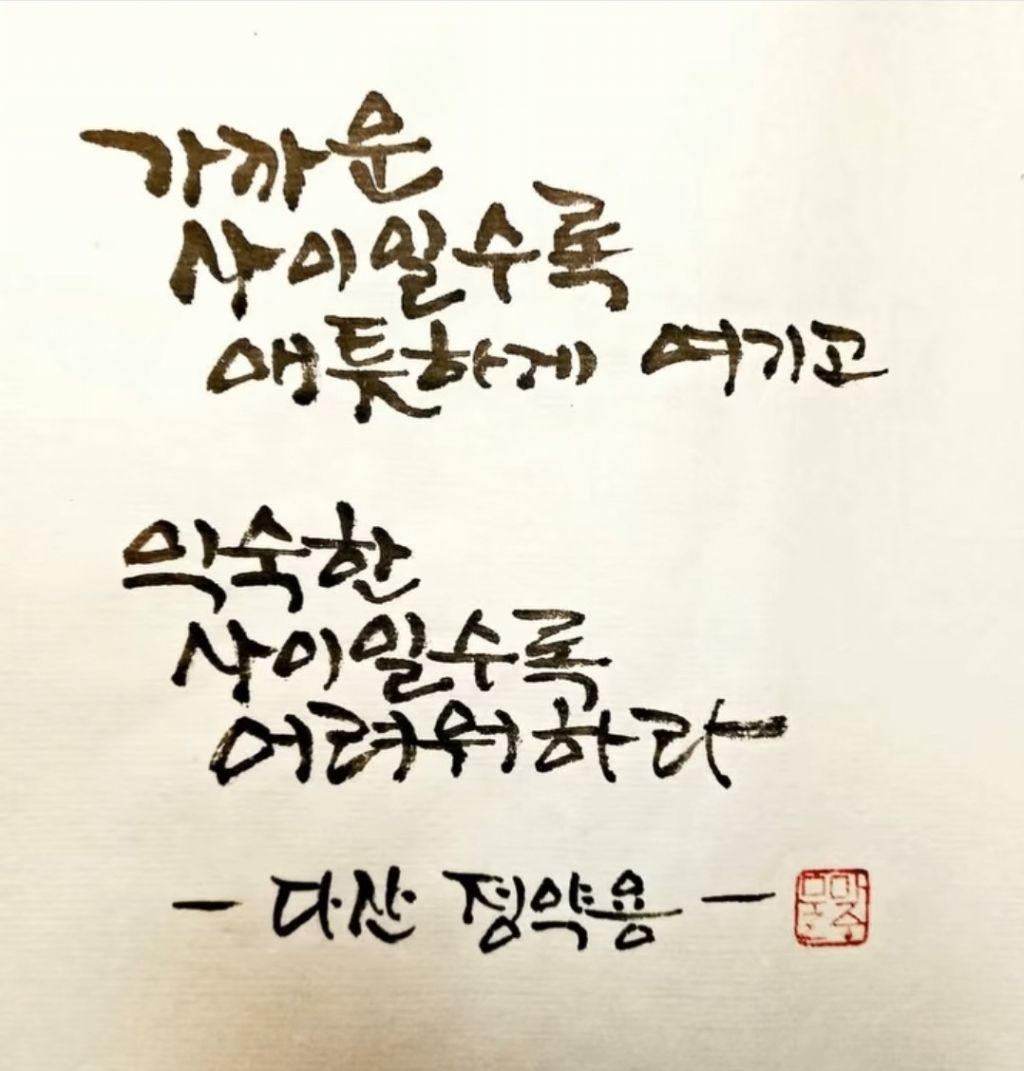 가까운
사이일수록
애틋하게 여기고
익숙한
사이일수록
어려워하라
- 다산 정약용 -